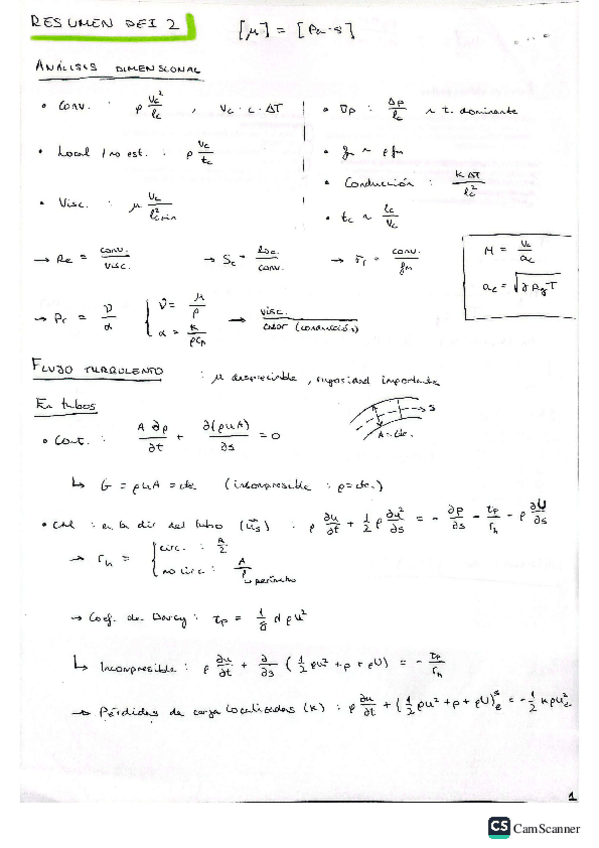 RESUMEN PEI 2 [μ] = [Pa·s]
ANÁLISIS DIMENSIONAL
• Conv. : ρ v_c²/l_c , v_c · c · ΔT
• ∇p : Δp/l_c ~ t. dominante
• Local / no est. : ρ v_c/t_c
• f_m ~ ρ f_m
• Conducción : k ΔT/l_c²
• Visc. : μ v_c/l²_cmin
• t_c ~ l_c/v_c
→ Re = conv./visc. → S_c = loc./conv. → Fr = conv./f_m
M = v_c/a_c
a_c = √(γ R_g T)
→ Pr = ν/α { ν = μ/ρ
α = k/(ρ c_p) → visc./calor (conducción)
FLUJO TURBULENTO : μ despreciable, rugosidad importante
En tubos
• Cont. : A ∂ρ/∂t + ∂(ρuA)/∂s = 0
→ s
A = cte.
↳ G = ρuA = cte. (incompresible : ρ = cte.)
• : en la dir del tubo (u_s) : ρ ∂u/∂t + 1/2 ρ ∂u²/∂s = - ∂p/∂s - τ_p/r_h - ρ ∂U/∂s
→ r_h = { circ. : R/2
no circ : A/P ↳ perímetro
→ Coef. de Darcy : τ_p = 1/8 λ ρu²
↳ Incompresible : ρ ∂u/∂t + ∂/∂s (1/2 ρu² + p + ρU) = - τ_p/r_h
→ Pérdidas de carga localizadas (K) : ρ ∂u/∂t + (1/2 ρu² + p + ρU)_e^s = - 1/2 K ρu_e²
1
CS CamScanner